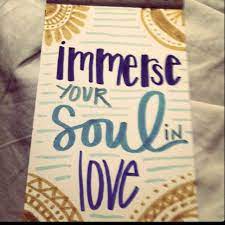 immerse
YOUR
Soul IN
love